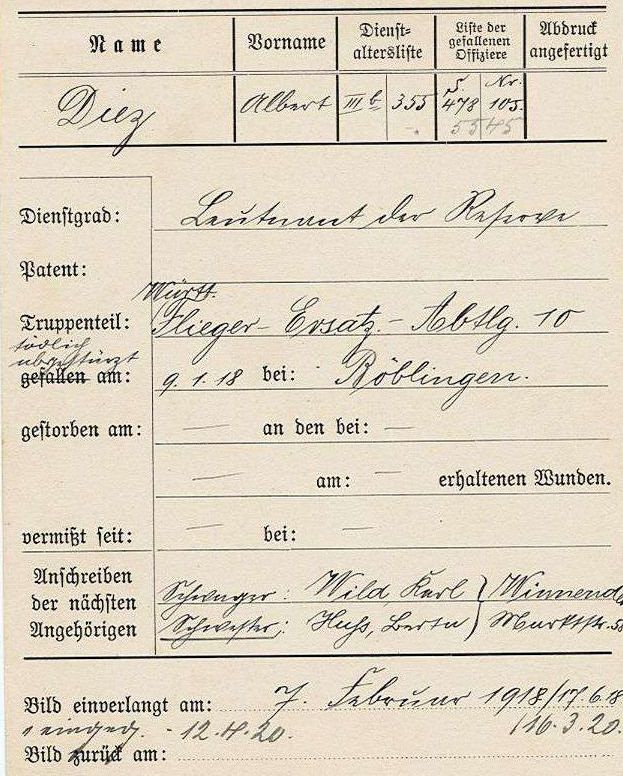 Name Vorname Dienst-altersliste Liste der gefallenen Offiziere Abdruck angefertigt
Diez Albert III b 355 S. 478 Nr. 105.
5545
Dienstgrad: Leutnant der Reserve
Patent:
Württ.
Truppenteil: Flieger-Ersatz-Abtlg. 10
tödlich
abgestürzt
gefallen am: 9.1.18 bei: Böblingen.
gestorben am: — an den bei: —
— am: — erhaltenen Wunden.
vermißt seit: — bei: —
Anschreiben der nächsten Angehörigen
Schwager: Wild, Karl } Winnenden
Schwester: Berta } Marktstr. 58
Bild einverlangt am: 7. Februar 1918/17.6.18
/16.3.20.
" eingeg. - 12.4.20.
Bild zurück am: